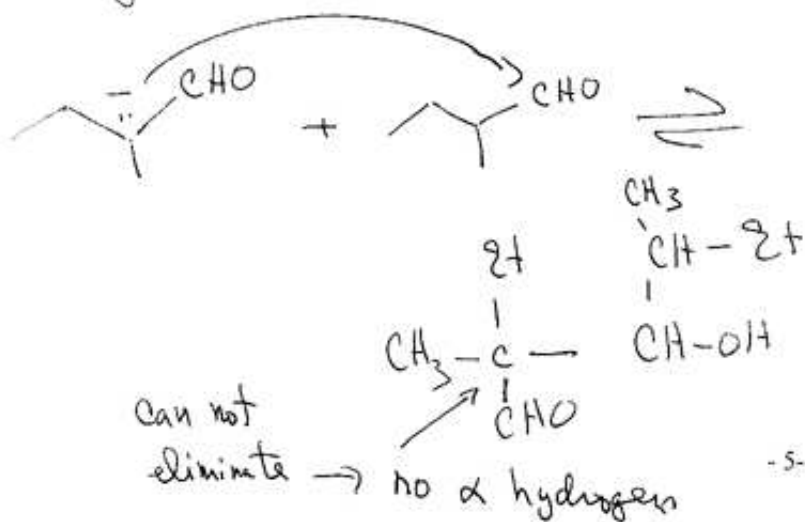 CHO
+
CHO
CH3
CH - Et
CH-OH
Et
CH3 - C -
CHO
can not
eliminate → no α hydrogen
-5-